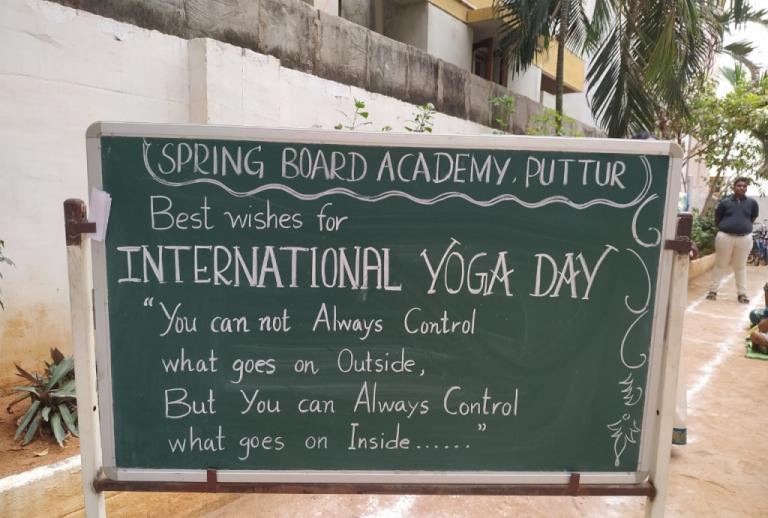 SPRING BOARD ACADEMY, PUTTUR
Best wishes for
INTERNATIONAL YOGA DAY
"You can not Always Control
what goes on Outside,
But You can Always Control
what goes on Inside......"